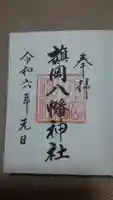 奉拝
旗岡八幡神社
令和六年元日